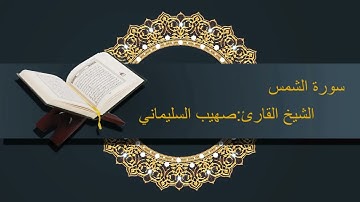 سورة الشمس
الشيخ القارئ:صهيب السليماني